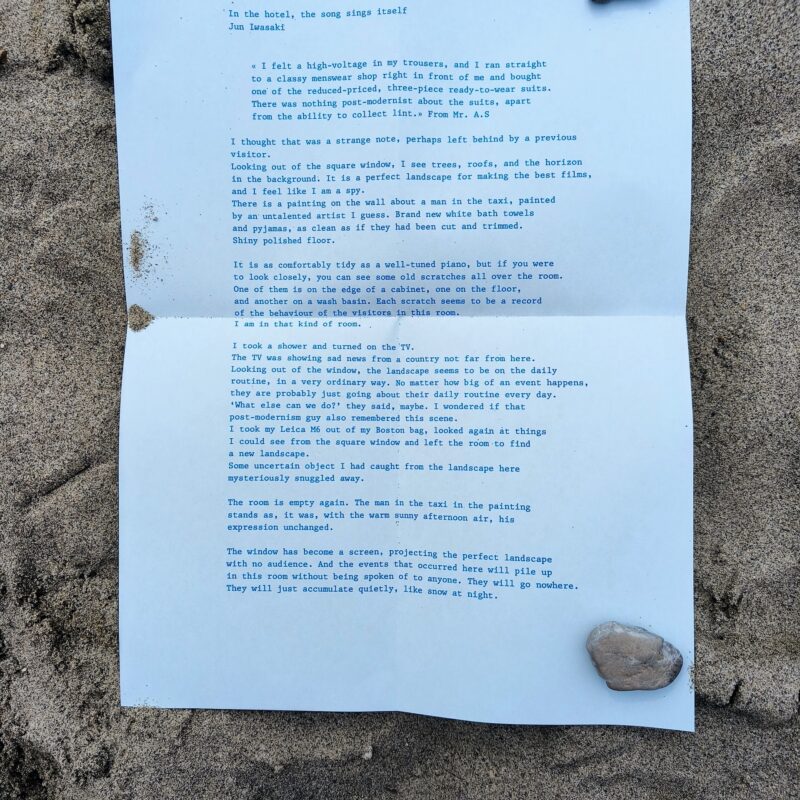 In the hotel, the song sings itself
Jun Iwasaki
« I felt a high-voltage in my trousers, and I ran straight
to a classy menswear shop right in front of me and bought
one of the reduced-priced, three-piece ready-to-wear suits.
There was nothing post-modernist about the suits, apart
from the ability to collect lint.» From Mr. A.S
I thought that was a strange note, perhaps left behind by a previous
visitor.
Looking out of the square window, I see trees, roofs, and the horizon
in the background. It is a perfect landscape for making the best films,
and I feel like I am a spy.
There is a painting on the wall about a man in the taxi, painted
by an untalented artist I guess. Brand new white bath towels
and pyjamas, as clean as if they had been cut and trimmed.
Shiny polished floor.
It is as comfortably tidy as a well-tuned piano, but if you were
to look closely, you can see some old scratches all over the room.
One of them is on the edge of a cabinet, one on the floor,
and another on a wash basin. Each scratch seems to be a record
of the behaviour of the visitors in this room.
I am in that kind of room.
I took a shower and turned on the TV.
The TV was showing sad news from a country not far from here.
Looking out of the window, the landscape seems to be on the daily
routine, in a very ordinary way. No matter how big of an event happens,
they are probably just going about their daily routine every day.
‘What else can we do?’ they said, maybe. I wondered if that
post-modernism guy also remembered this scene.
I took my Leica M6 out of my Boston bag, looked again at things
I could see from the square window and left the room to find
a new landscape.
Some uncertain object I had caught from the landscape here
mysteriously snuggled away.
The room is empty again. The man in the taxi in the painting
stands as, it was, with the warm sunny afternoon air, his
expression unchanged.
The window has become a screen, projecting the perfect landscape
with no audience. And the events that occurred here will pile up
in this room without being spoken of to anyone. They will go nowhere.
They will just accumulate quietly, like snow at night.